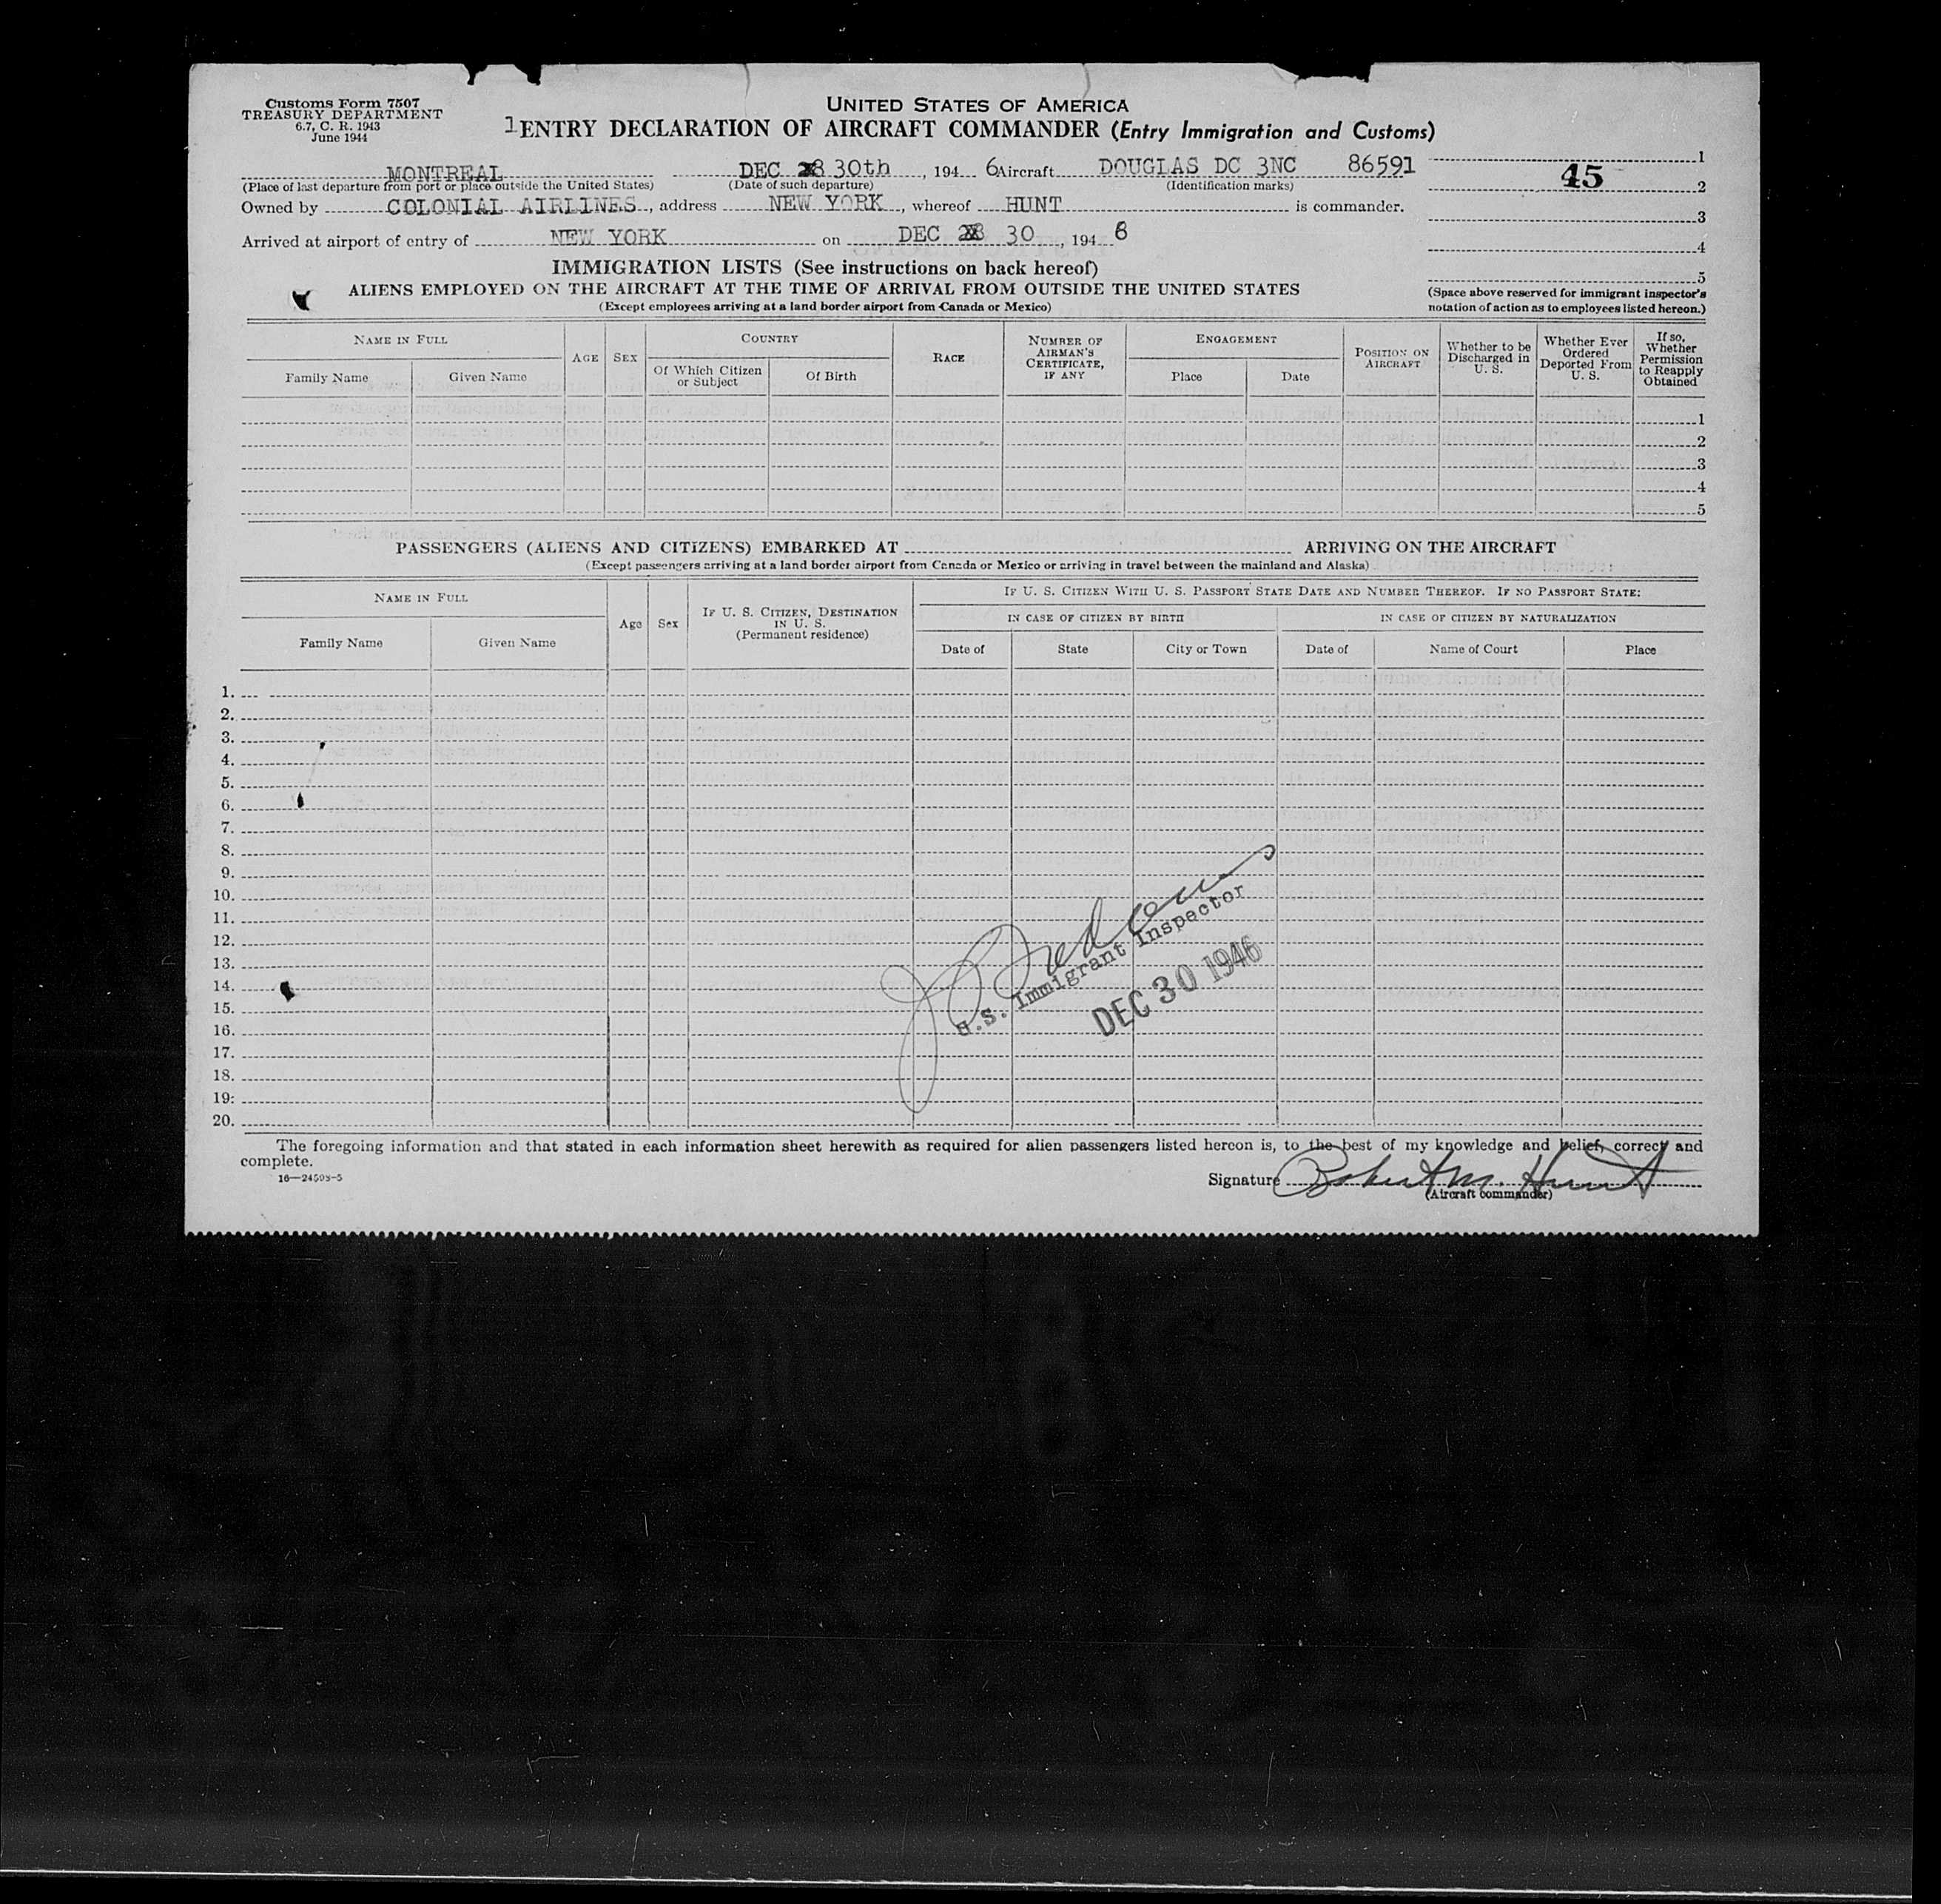 Customs Form 7507
TREASURY DEPARTMENT
6.7, C. R. 1943
June 1944
UNITED STATES OF AMERICA
1ENTRY DECLARATION OF AIRCRAFT COMMANDER (Entry Immigration and Customs)
MONTREAL DEC 28 30th, 194 6 Aircraft DOUGLAS DC 3NC 86591
(Place of last departure from port or place outside the United States) (Date of such departure) (Identification marks)
Owned by COLONIAL AIRLINES, address NEW YORK, whereof HUNT is commander.
Arrived at airport of entry of NEW YORK on DEC 28 30, 194 6
1
45
2
3
4
5
(Space above reserved for immigrant inspector's
notation of action as to employees listed hereon.)
IMMIGRATION LISTS (See instructions on back hereof)
ALIENS EMPLOYED ON THE AIRCRAFT AT THE TIME OF ARRIVAL FROM OUTSIDE THE UNITED STATES
(Except employees arriving at a land border airport from Canada or Mexico)
NAME IN FULL
Family Name Given Name
AGE
SEX
COUNTRY
Of Which Citizen
or Subject
Of Birth
RACE
NUMBER OF
AIRMAN'S
CERTIFICATE,
IF ANY
ENGAGEMENT
Place Date
POSITION ON
AIRCRAFT
Whether to be
Discharged in
U. S.
Whether Ever
Ordered
Deported From
U. S.
If so,
Whether
Permission
to Reapply
Obtained
1
2
3
4
5
PASSENGERS (ALIENS AND CITIZENS) EMBARKED AT ARRIVING ON THE AIRCRAFT
(Except passengers arriving at a land border airport from Canada or Mexico or arriving in travel between the mainland and Alaska)
NAME IN FULL
Family Name Given Name
Age
Sex
IF U. S. CITIZEN, DESTINATION
IN U. S.
(Permanent residence)
IF U. S. CITIZEN WITH U. S. PASSPORT STATE DATE AND NUMBER THEREOF. IF NO PASSPORT STATE:
IN CASE OF CITIZEN BY BIRTH IN CASE OF CITIZEN BY NATURALIZATION
Date of State City or Town Date of Name of Court Place
1.
2.
3.
4.
5.
6.
7.
8.
9.
10.
11.
12.
13.
14.
15.
16.
17.
18.
19.
20.
U.S. Immigrant Inspector
DEC 30 1946
The foregoing information and that stated in each information sheet herewith as required for alien passengers listed hereon is, to the best of my knowledge and belief, correct and
complete.
16—24508-5
Signature Robert M. Hunt
(Aircraft commander)